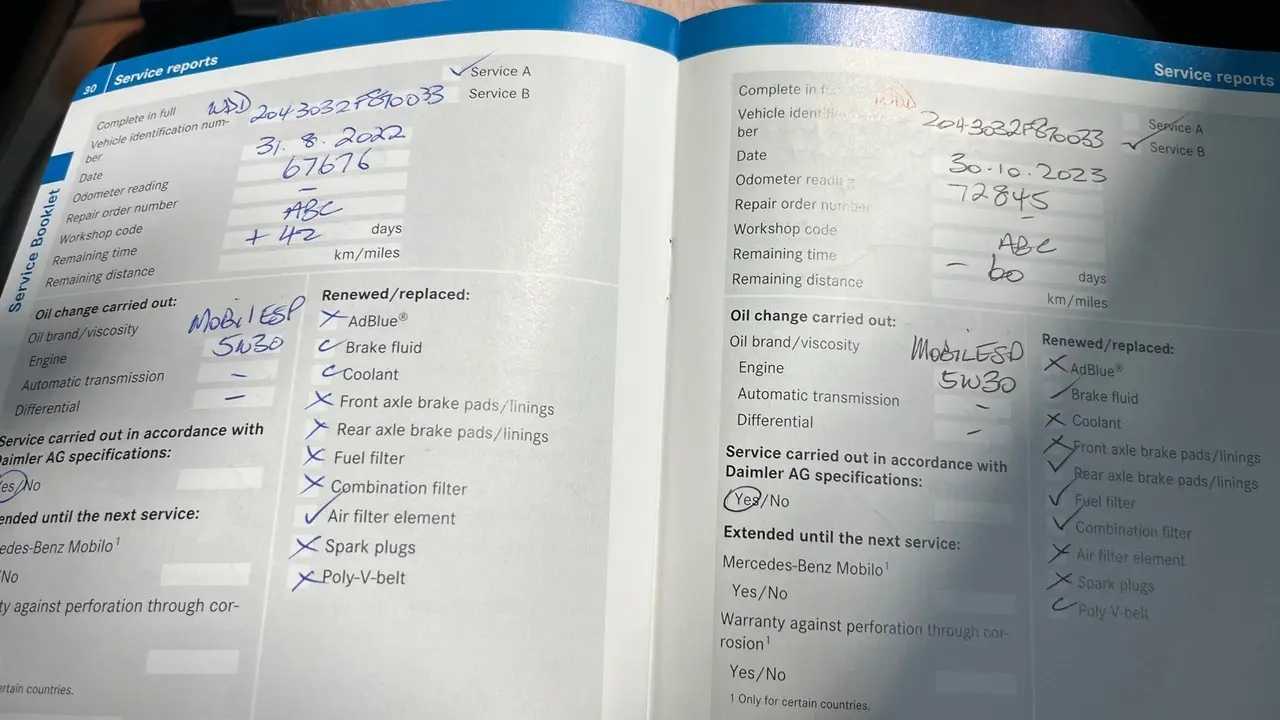 30 Service reports
Complete in full
Service A
Service B
Vehicle identification num-
ber
WDD 2043032F870033
Date
31. 8. 2022
Odometer reading
67676
Repair order number
-
Workshop code
ABC
Remaining time
+ 42 days
Remaining distance
km/miles
Service Booklet
Oil change carried out:
Oil brand/viscosity
MOBIL ESP
Engine
5W30
Automatic transmission
-
Differential
-
Service carried out in accordance with
Daimler AG specifications:
Yes/No
ended until the next service:
edes-Benz Mobilo¹
/No
ty against perforation through cor-
ertain countries.
Renewed/replaced:
AdBlue®
Brake fluid
Coolant
Front axle brake pads/linings
Rear axle brake pads/linings
Fuel filter
Combination filter
Air filter element
Spark plugs
Poly-V-belt
Service reports
Complete in full
Service A
Service B
Vehicle identification
ber
WDD 2043032F870033
Date
30.10.2023
Odometer reading
72845
Repair order number
-
Workshop code
ABC
Remaining time
- 60 days
Remaining distance
km/miles
Oil change carried out:
Oil brand/viscosity
MOBIL ESP
Engine
5W30
Automatic transmission
-
Differential
-
Service carried out in accordance with
Daimler AG specifications:
Yes/No
Extended until the next service:
Mercedes-Benz Mobilo¹
Yes/No
Warranty against perforation through cor-
rosion¹
Yes/No
1 Only for certain countries.
Renewed/replaced:
AdBlue®
Brake fluid
Coolant
Front axle brake pads/linings
Rear axle brake pads/linings
Fuel filter
Combination filter
Air filter element
Spark plugs
Poly-V-belt